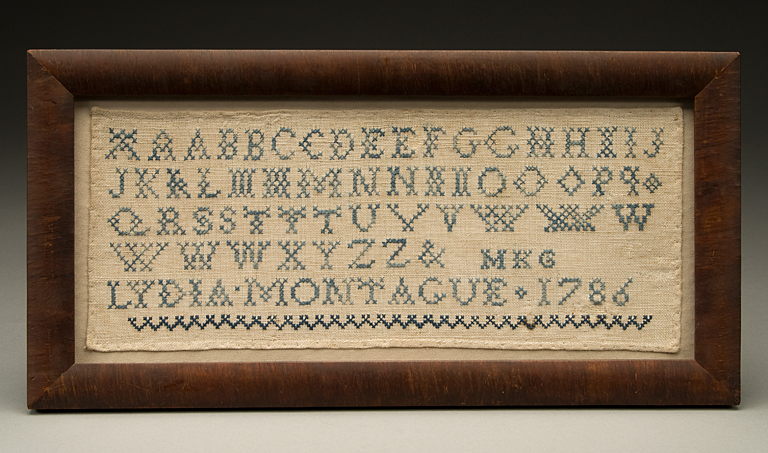 A A A B B C C D E E F G G H H I I J
J K A L M M M N N N N O O O P P
Q R S S T T T U V V W W W
W W W X Y Z Z & MKG
LYDIA · MONTAGUE · 1786